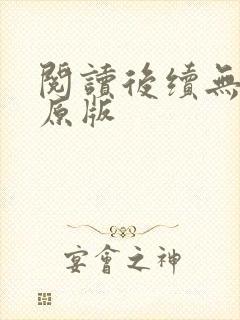 閱讀後續無
原版
宴會之神